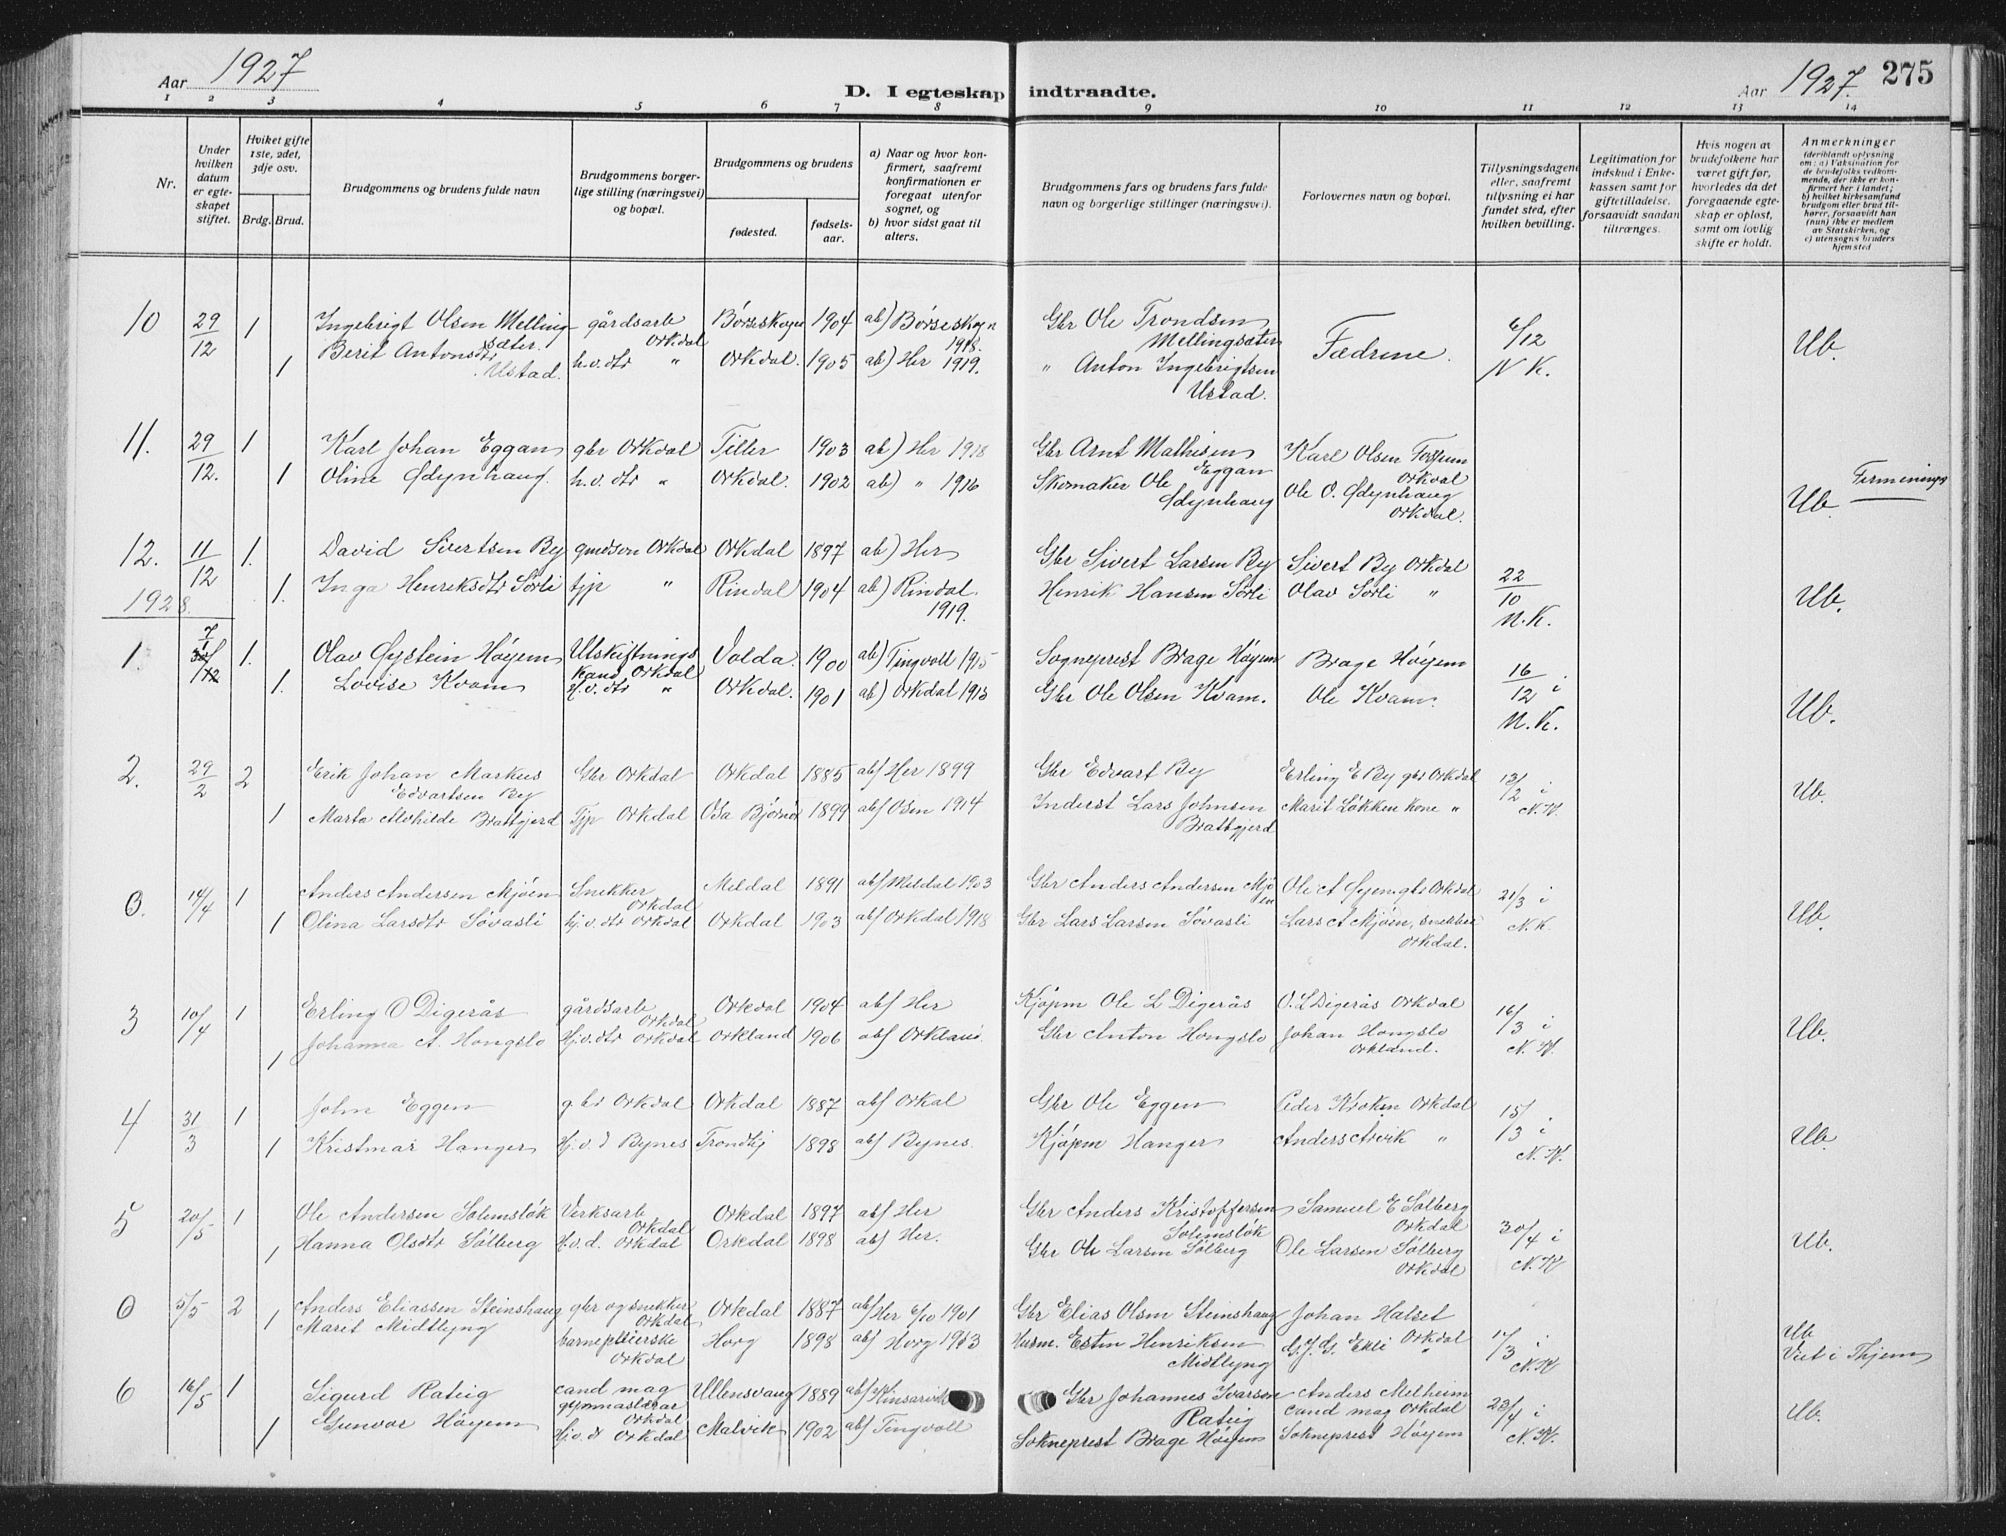 Aar 1927
D. I egteskap indtraadte.
Aar 1927. 275
1 2 3 4 5 6 7 8 9 10 11 12 13 14
Nr.
Under hvilken datum er egteskapet stiftet.
Hviket gifte 1ste, 2det, 3dje osv.
Brdg. Brud.
Brudgommens og brudens fulde navn
Brudgommens borgerlige stilling (næringsvei) og bopæl.
Brudgommens og brudens
fødested.
fødselsaar.
a) Naar og hvor konfirmert, saafremt konfirmationen er foregaat utenfor sognet, og
b) hvor sidst gaat til alters.
Brudgommens fars og brudens fars fulde navn og borgerlige stillinger (næringsvei).
Forlovernes navn og bopæl.
Tillysningsdagene eller, saafremt tillysning ei har fundet sted, efter hvilken bevilling.
Legitimation for indskud i Enkekassen samt for giftetilladelse, forsaavidt saadan tiltrænges.
Hvis nogen av brudefolkene har været gift før, hvorledes da det foregaaende egteskap er opløst, samt om lovlig skifte er holdt.
Anmerkninger
(deriblandt oplysning om: a) Vaksination for de brudefolks vedkommende, der ikke er konfirmert her i landet; b) hvilket kirkesamfund brudgom eller brud tilhører, forsaavidt han (hun) ikke er medlem av Statskirken, og c) utensogns bruders hjemsted
10 29/12 1 Ingebrigt Olsen Mellingsæter. gårdsarb Orkdal Børseskogn 1904 ab) Børseskogn 1918. Gbr Ole Trondsen Mellingsæter Fædrene. 6/12 N K. Ub.
1 Berit Antonsdtr Ustad. h.v.dtr " Orkdal. 1905 ab) Her 1919. " Anton Ingebrigtsen Ustad.
11. 29/12. 1 Karl Johan Eggan gbr Orkdal Tiller 1903 ab) Her 1918 Gbr Arnt Mathisen Eggan Karl Olsen Fossum Orkdal
1 Oline Ødynhaug. h.v.dtr " Orkdal. 1902 ab) " 1916 Skomaker Ole Ødynhaug Ole O. Ødynhaug Orkdal. Ub.
12. 11/12 1. David Sivertsen By gmdsøn Orkdal Orkdal 1897 ab) Her Gbr Sivert Larsen By Sivert By Orkdal 22/10 N.K. Ub.
1. Inga Henriksdtr Sørli tjp " Rindal 1904 ab) Rindal. 1919. Henrik Hansen Sørli Olav Sørli "
1928.
1. 7/1 1. Olav Øystein Høyem Utskiftnings kand Orkdal Volda. 1900 ab) Tingvoll 1915 Sogneprest Brage Høyem Brage Høyem 16/12 i N.K. Ub.
1. Lovise Kvam H.v.dtr " Orkdal. 1901 ab) Orkdal 1915 Gbr Ole Olsen Kvam. Ole Kvam.
2. 29/2 2 Erik Johan Markus Edvartsen By Gbr Orkdal Orkdal 1885 abf Her 1899 Gbr Edvart By Erling E By gbr Orkdal 13/2 i N.K. Ub.
1 Marta Alvhilde Brattgjerd Tjp Orkdal Osa Bjørnør 1899 abf Osen 1914 Inderst Lars Johnsen Brattgjerd Marit Løkken kone "
0. 14/4 1 Anders Andersen Mjøen Snekker Orkdal Meldal 1891 abf Meldal 1903 Gbr Anders Andersen Mjøen Ole A Øyen gbr Orkdal 21/3 i N.K. Ub.
1 Olina Larsdtr Søvasli hj.v.dtr Orkdal Orkdal 1903 abf Orkdal 1918 Gbr Lars Larsen Søvasli Lars A Mjøen, snekker Orkdal.
3 10/4 1 Erling O Digerås gårdsarb Orkdal Orkdal 1904 abf Her Kjøpm Ole L Digerås O. L Digerås Orkdal 16/3 i N.K. Ub.
1 Johanna A. Hongslo Hj.v.dtr Orkdal Orkland 1906 abf Orkland. Gbr Anton Hongslo Johan Hongslo Orkland.
4 31/3 1 John Eggen gbr Orkdal Orkdal 1887 abf Orkal Gbr Ole Eggen Peder Kroken Orkdal 15/3 i N.K. Ub.
1 Kristmar Hanger Hj.v.d Bynes Trondhj 1898 abf Bynes. Kjøpm Hanger Anders Arvik "
5 20/5 1 Ole Andersen Solemsløk Verksarb Orkdal Orkdal 1897 abf Her Gbr Anders Kristoffersen Solemsløk Samuel E Sølberg Orkdal 30/4 i N.K Ub.
1 Hanna Olsdtr Sølberg H.v.d. Orkdal Orkdal 1898 abf Her. Gbr Ole Larsen Sølberg Ole Larsen Sølberg Orkdal
0 5/5 2 Anders Eliassen Steinshaug gbr og snekker Orkdal Orkdal 1887 abf Her 6/10 1901 Gbr Elias Olsen Steinshaug Johan Halset Orkdal 17/3 i N.K Ub
1 Marit Midtlyng barnepleierske Orkdal Horg 1898 abf Horg 1913 Husm. Esten Henriksen Midtlyng G. J. G. Ekli " Viet i Thjem
6 16/5 1 Sigurd Rateig cand mag gymnastlærar Orkdal Ullensvang 1889 abf Kinsarvik Gbr Johannes Ivarson Rateig Anders Melheim cand mag Orkdal 23/4 i N.K. Ub.
1 Gunvor Høyem Hj.v.d Orkdal Malvik 1902 abf Tingvoll Sokneprest Brage Høyem Sokneprest Høyem